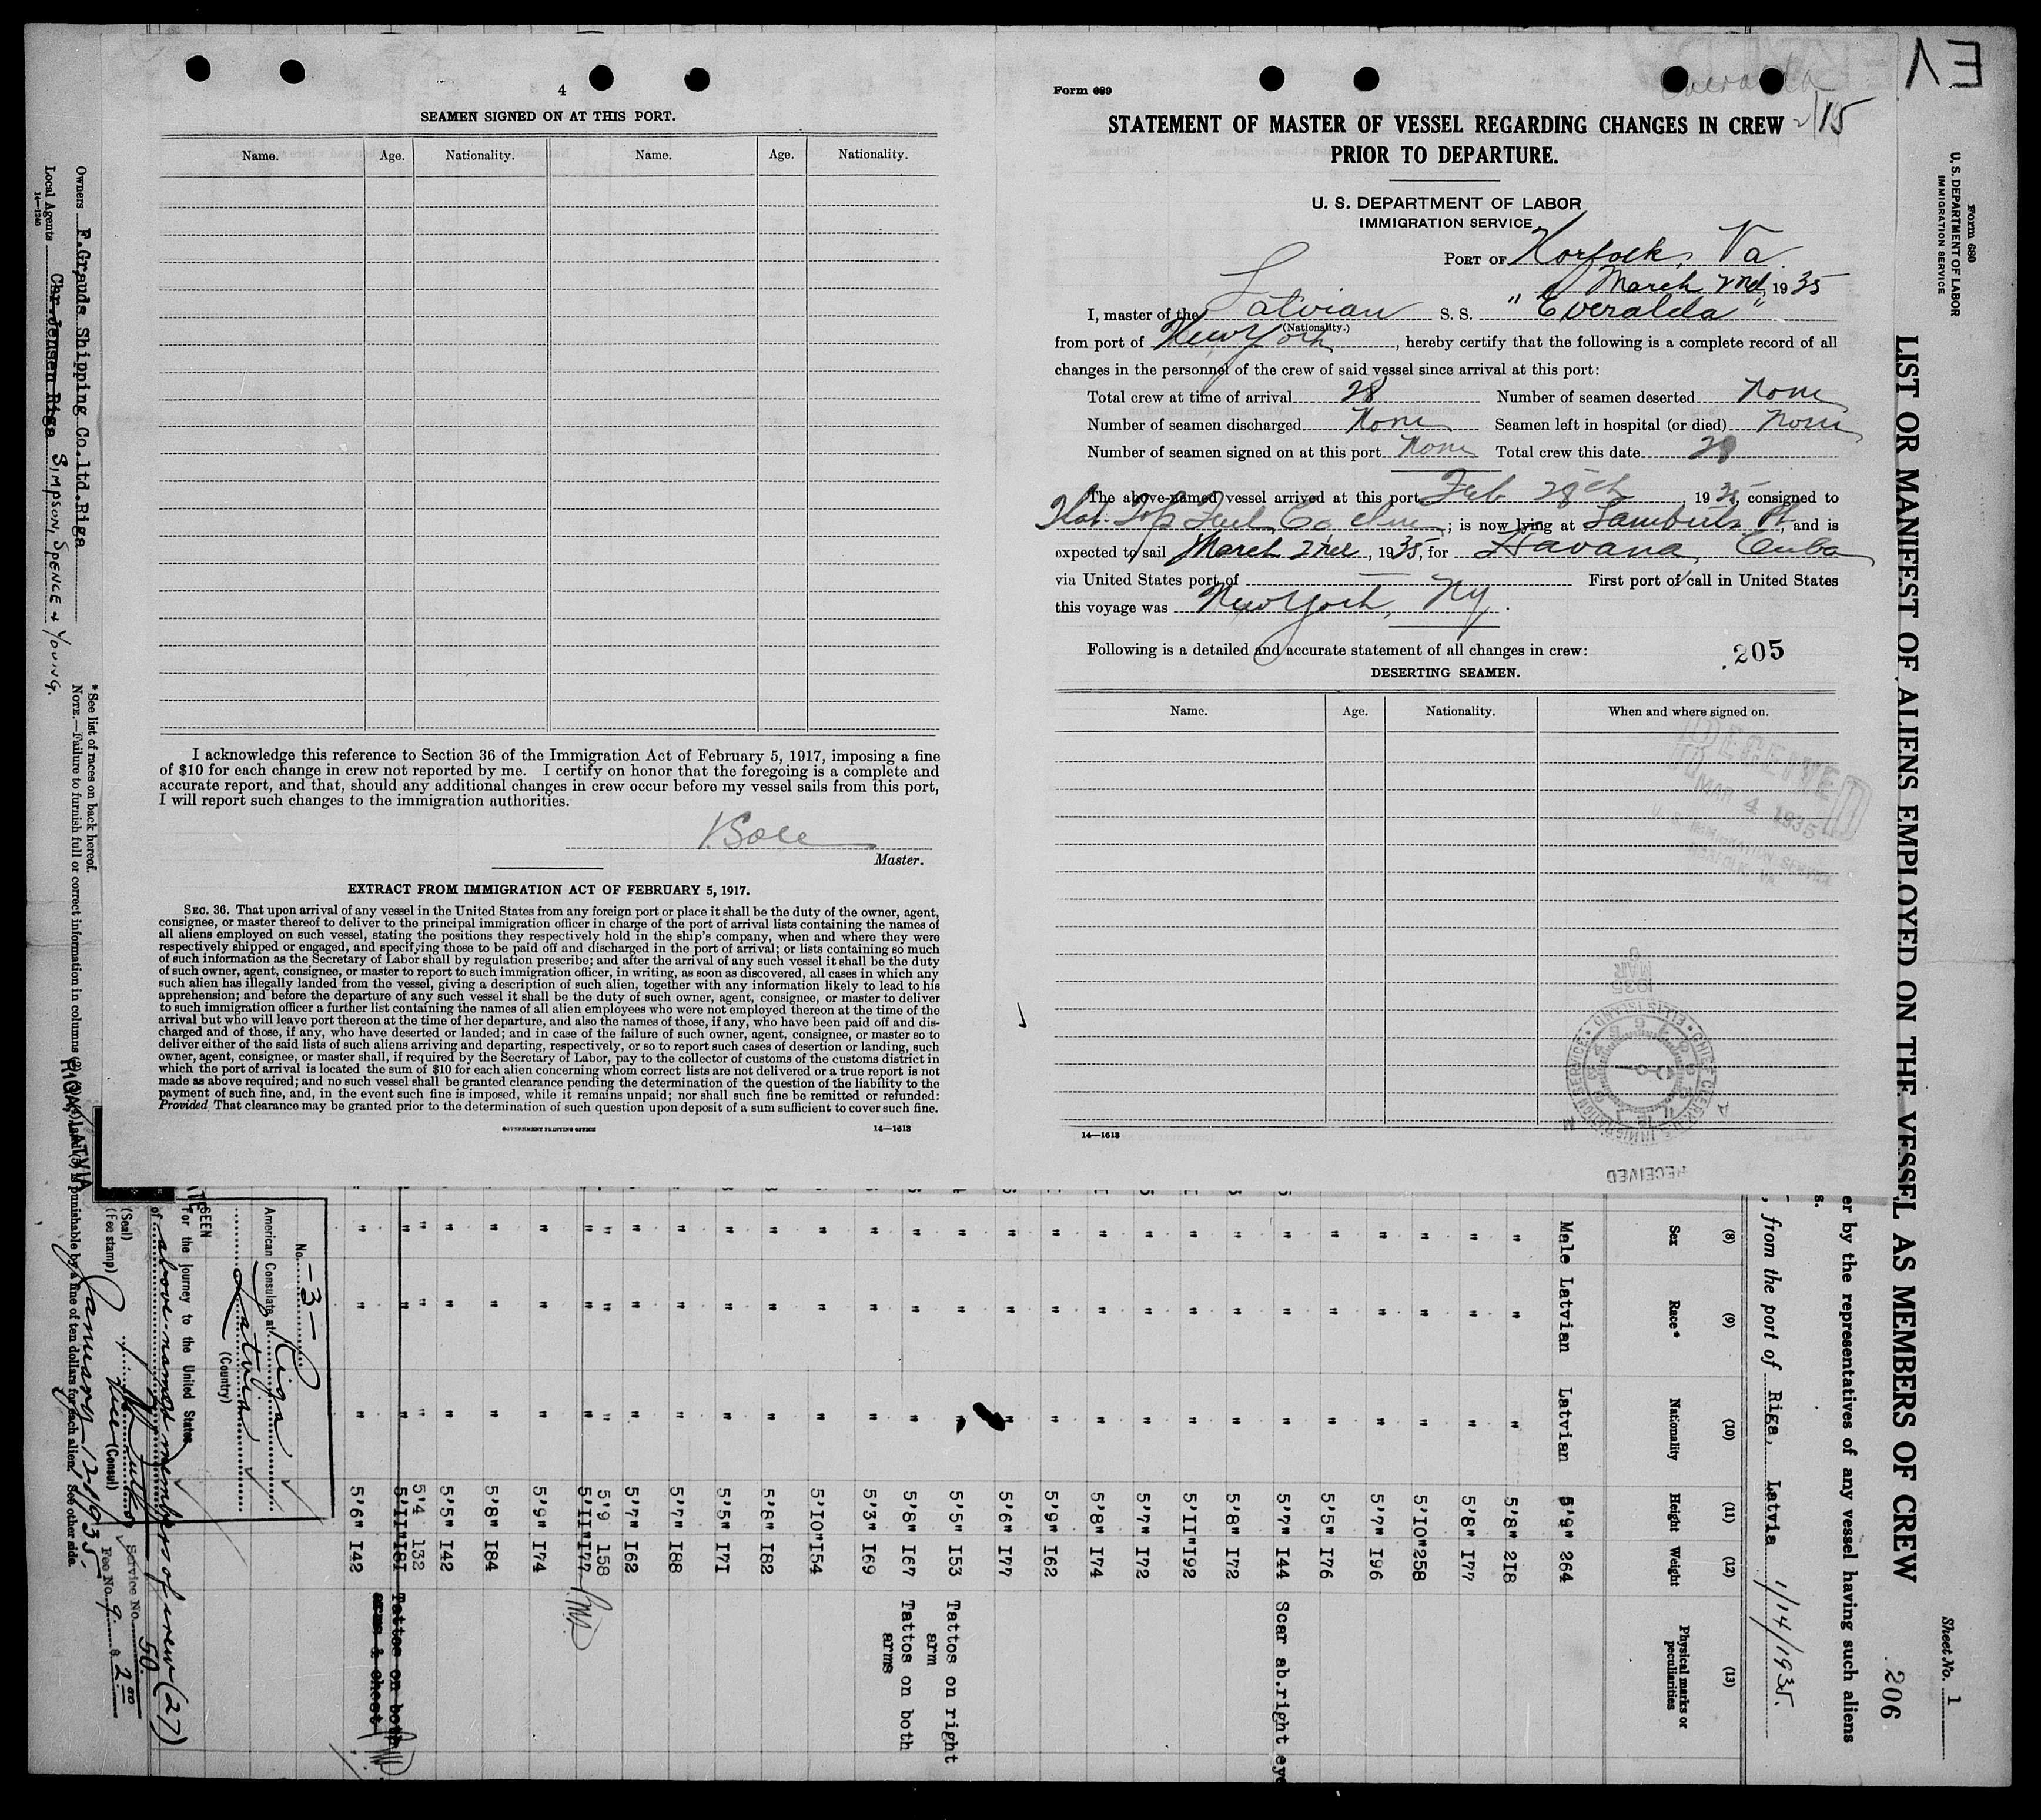 4
SEAMEN SIGNED ON AT THIS PORT.
Name. Age. Nationality. Name. Age. Nationality.
I acknowledge this reference to Section 36 of the Immigration Act of February 5, 1917, imposing a fine
of $10 for each change in crew not reported by me. I certify on honor that the foregoing is a complete and
accurate report, and that, should any additional changes in crew occur before my vessel sails from this port,
I will report such changes to the immigration authorities.
Master.
EXTRACT FROM IMMIGRATION ACT OF FEBRUARY 5, 1917.
SEC. 36. That upon arrival of any vessel in the United States from any foreign port or place it shall be the duty of the owner, agent,
consignee, or master thereof to deliver to the principal immigration officer in charge of the port of arrival lists containing the names of
all aliens employed on such vessel, stating the positions they respectively hold in the ship's company, when and where they were
respectively shipped or engaged, and specifying those to be paid off and discharged in the port of arrival; or lists containing so much
of such information as the Secretary of Labor shall by regulation prescribe; and after the arrival of any such vessel it shall be the duty
of such owner, agent, consignee, or master to report to such immigration officer, in writing, as soon as discovered, all cases in which any
such alien has illegally landed from the vessel, giving a description of such alien, together with any information likely to lead to his
apprehension; and before the departure of any such vessel it shall be the duty of such owner, agent, consignee, or master to deliver
to such immigration officer a further list containing the names of all alien employees who were not employed thereon at the time of the
arrival but who will leave port thereon at the time of her departure, and also the names of those, if any, who have been paid off and dis-
charged and of those, if any, who have deserted or landed; and in case of the failure of such owner, agent, consignee, or master so to
deliver either of the said lists of such aliens arriving and departing, respectively, or so to report such cases of desertion or landing, such
owner, agent, consignee, or master shall, if required by the Secretary of Labor, pay to the collector of customs of the customs district in
which the port of arrival is located the sum of $10 for each alien concerning whom correct lists are not delivered or a true report is not
made as above required; and no such vessel shall be granted clearance pending the determination of the question of the liability to the
payment of such fine, and, in the event such fine is imposed, while it remains unpaid; nor shall such fine be remitted or refunded:
Provided That clearance may be granted prior to the determination of such question upon deposit of a sum sufficient to cover such fine.
GOVERNMENT PRINTING OFFICE 14—1613
Form 689
Everalda
2/15
STATEMENT OF MASTER OF VESSEL REGARDING CHANGES IN CREW
PRIOR TO DEPARTURE.
U. S. DEPARTMENT OF LABOR
IMMIGRATION SERVICE
PORT OF Norfolk, Va.
March 2nd, 1935
I, master of the Latvian S. S. "Everalda"
(Nationality.)
from port of New York, hereby certify that the following is a complete record of all
changes in the personnel of the crew of said vessel since arrival at this port:
Total crew at time of arrival 28 Number of seamen deserted None
Number of seamen discharged None Seamen left in hospital (or died) None
Number of seamen signed on at this port None Total crew this date 28
The above-named vessel arrived at this port Feb 28th, 1935 consigned to
Flat Top Fuel Co Inc; is now lying at Lamberts Pt, and is
expected to sail March 2nd, 1935, for Havana, Cuba
via United States port of — First port of call in United States
this voyage was New York, NY.
Following is a detailed and accurate statement of all changes in crew:
.205
DESERTING SEAMEN.
Name. Age. Nationality. When and where signed on.
RECEIVED
MAR 4 1935
U. S. IMMIGRATION SERVICE
NORFOLK, VA
1935
MAR
8
CHIEF CLERK U.S. IMMIGRATION SERVICE • ELLIS ISLAND
RECEIVED
14—1613
Form 680
U. S. DEPARTMENT OF LABOR
IMMIGRATION SERVICE
Sheet No. 1
LIST OR MANIFEST OF ALIENS EMPLOYED ON THE VESSEL AS MEMBERS OF CREW
206
er by the representatives of any vessel having such aliens
s.
, from the port of Riga, Latvia 1/14/1935.
(8) (9) (10) (11) (12) (13)
Sex Race* Nationality Height Weight Physical marks or
peculiarities
Male Latvian Latvian 5'9" 264
" " " 5'8" 218
" " " 5'8" 177
" " " 5'10" 258
" " " 5'7" 196
" " " 5'5" 176
" " " 5'7" 144 Scar ab.right eye
" " " 5'8" 172
" " " 5'11" 192
" " " 5'7" 172
" " " 5'8" 174
" " " 5'9" 162
" " " 5'6" 177
" " " 5'5" 153 Tattos on right
arm
" " " 5'8" 167 Tattos on both
arms
" " " 5'3" 169
" " " 5'10" 154
" " " 5'8" 182
" " " 5'5" 171
" " " 5'7" 188
" " " 5'7" 162
" " " 5'9 158
" " " 5'11" 177
" " " 5'9" 174
" " " 5'8" 184
" " " 5'5" 142
" " " 5'4 132
" " " 5'11" 181 Tattos on both
arms & chest
" " " 5'6" 142
No. -3-
American Consulate at Riga
Latvia
(Country)
SEEN
For the journey to the United States
of above-named members of crew (27)
(Consul)
(Seal)
(Fee stamp)
Service No. 50
Fee No. 9 $ 2.00
January 12, 1935
RIGA, LATVIA
*See list of races on back hereof.
NOTE.—Failure to furnish full or correct information in columns is punishable by a fine of ten dollars for each alien. See other side.
Owners F.Grauds Shipping Co.ltd.Riga
Local Agents Chr.Jensen Riga SIMPSON, SPENCE & YOUNG.
14—1240